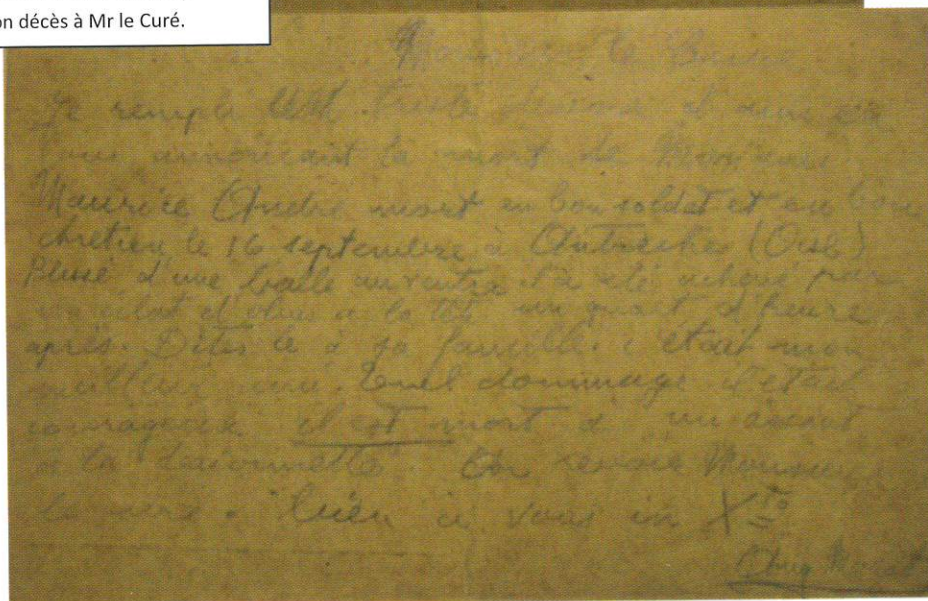 on décès à Mr le Curé.
Monsieur le
Je rempli triste et
vous annonçant la mort de Monsieur
Maurice André mort en bon soldat et en bon
chretien le 16 septembre à Autreche (Oise)
Blessé d'une balle au ventre il a été achevé par
un éclat d'obus a la tête un quart d'heure
après. Dites le à sa famille. c'était mon
meilleur ami. Quel dommage il était
courageux il est mort a un assaut
à la baionnette. Monsieur
le bien à vous in X